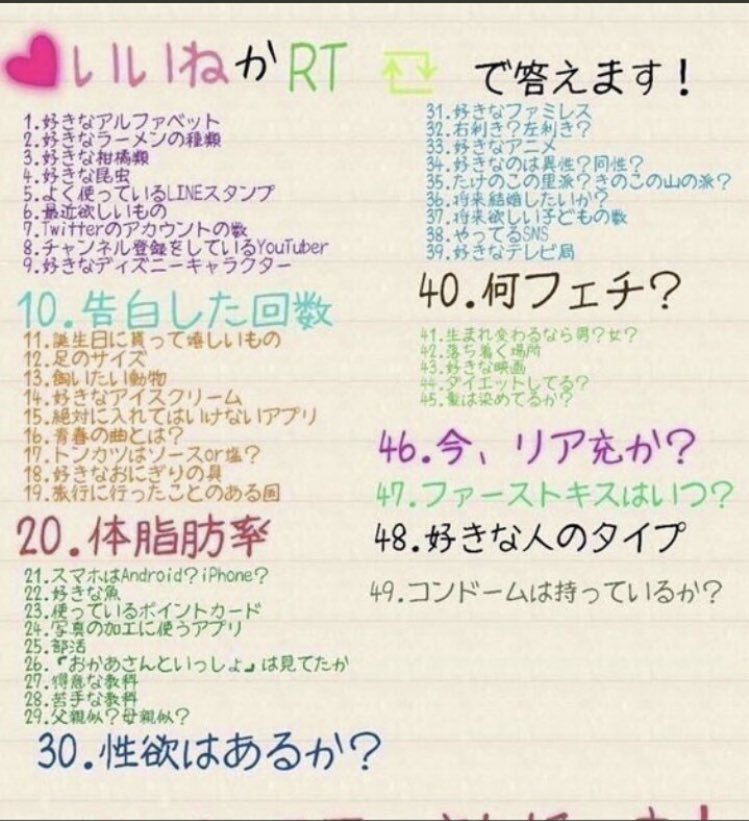 いいねかRT
で答えます！
1.好きなアルファベット
2.好きなラーメンの種類
3.好きな柑橘類
4.好きな昆虫
5.よく使っているLINEスタンプ
6.最近欲しいもの
7.Twitterのアカウントの数
8.チャンネル登録をしているYouTuber
9.好きなディズニーキャラクター
10.告白した回数
11.誕生日に貰って嬉しいもの
12.足のサイズ
13.飼いたい動物
14.好きなアイスクリーム
15.絶対に入れてはいけないアプリ
16.青春の曲とは？
17.トンカツはソースor塩？
18.好きなおにぎりの具
19.旅行に行ったことのある国
20.体脂肪率
21.スマホはAndroid？iPhone？
22.好きな魚
23.使っているポイントカード
24.写真の加工に使うアプリ
25.部活
26.『おかあさんといっしょ』は見てたか
27.得意な教科
28.苦手な教科
29.父親似？母親似？
30.性欲はあるか？
31.好きなファミレス
32.右利き？左利き？
33.好きなアニメ
34.好きなのは異性？同性？
35.たけのこの里派？きのこの山の派？
36.将来結婚したいか？
37.将来欲しい子どもの数
38.やってるSNS
39.好きなテレビ局
40.何フェチ？
41.生まれ変わるなら男？女？
42.落ち着く場所
43.好きな映画
44.ダイエットしてる？
45.髪は染めてるか？
46.今、リア充か？
47.ファーストキスはいつ？
48.好きな人のタイプ
49.コンドームは持っているか？